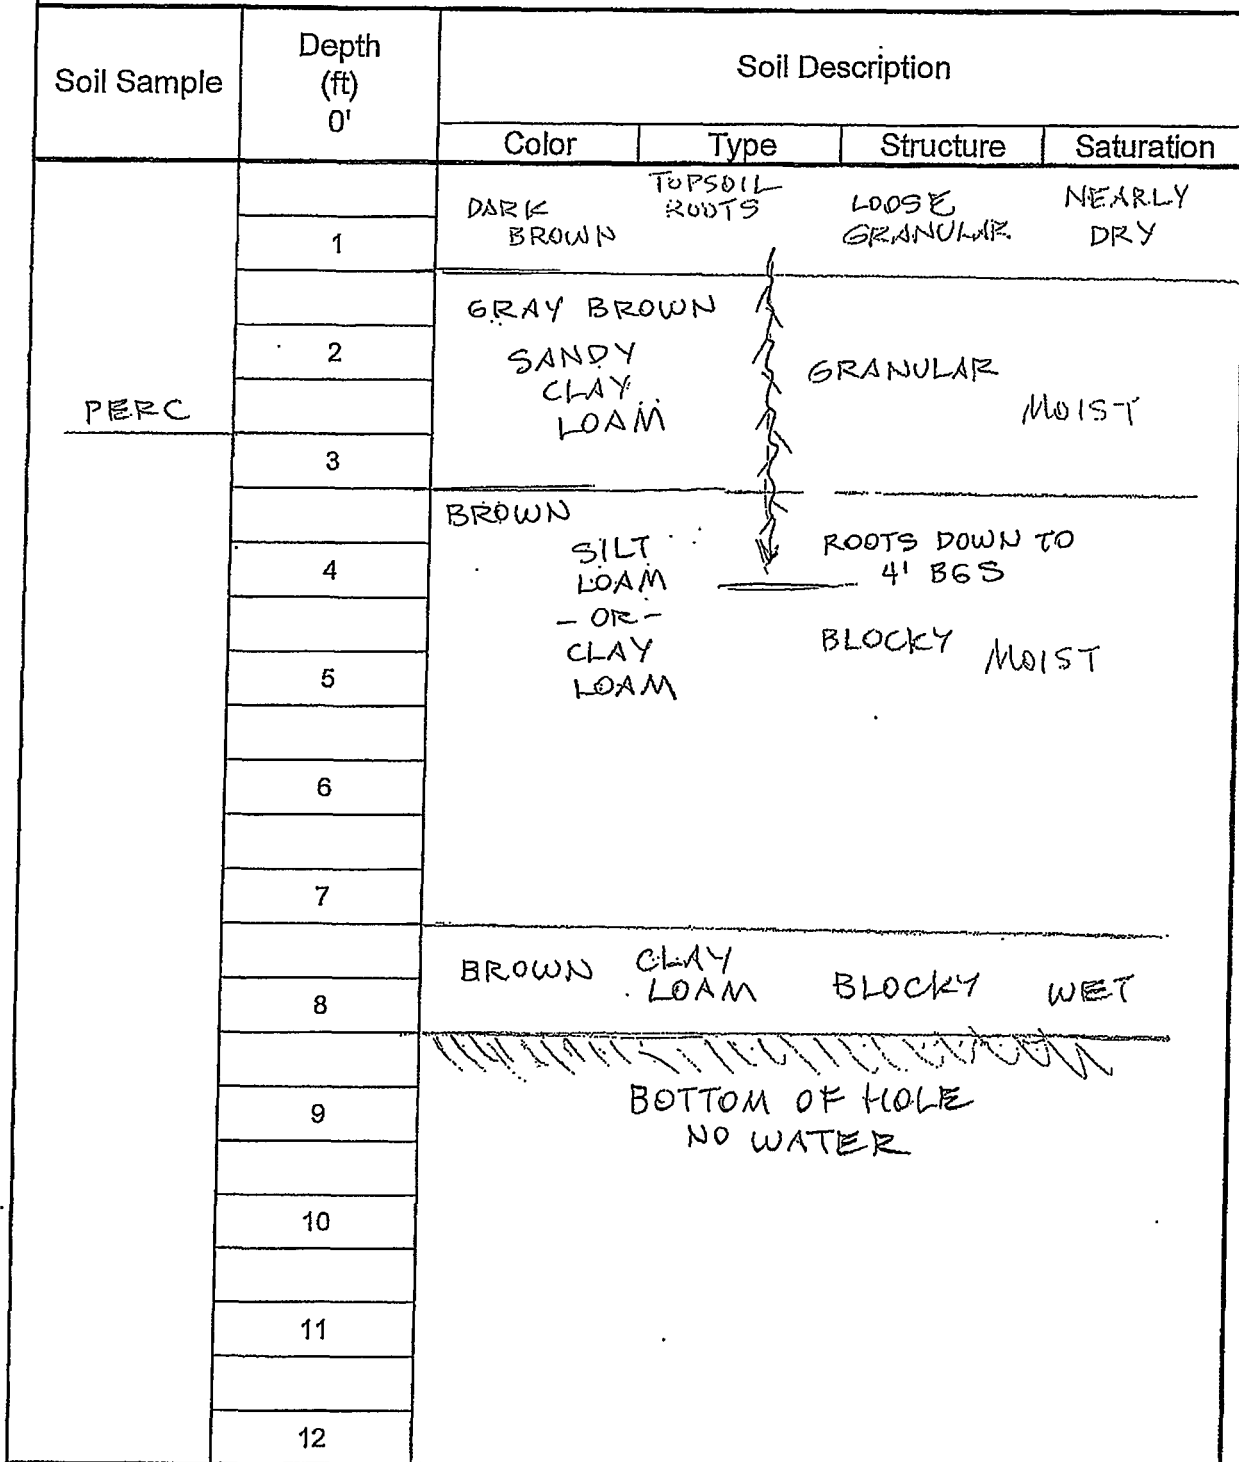 Soil Sample
Depth
(ft)
0'
Soil Description
Color Type Structure Saturation
DARK
BROWN
TOPSOIL
ROOTS
LOOSE
GRANULAR
NEARLY
DRY
1
GRAY BROWN
SANDY
CLAY
LOAM
GRANULAR
MOIST
2
PERC
3
BROWN
SILT
LOAM
- OR -
CLAY
LOAM
ROOTS DOWN TO
4' BGS
BLOCKY MOIST
4
5
6
7
BROWN
CLAY
LOAM
BLOCKY
WET
8
BOTTOM OF HOLE
NO WATER
9
10
11
12